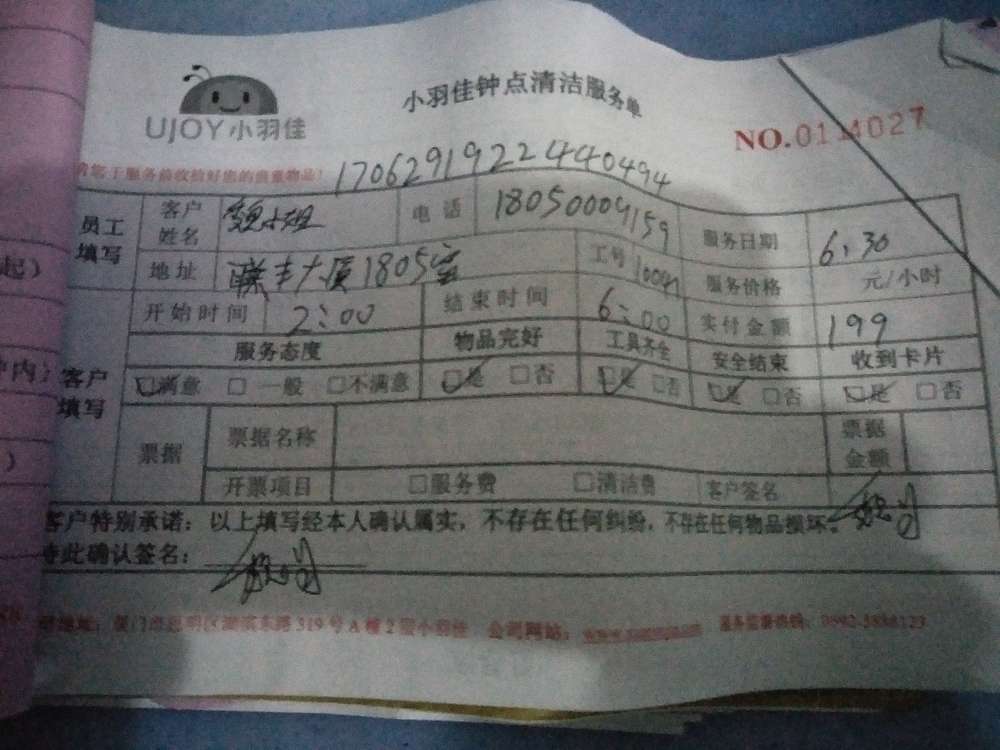 UJOY小羽佳
小羽佳钟点清洁服务单
NO.0114027
请您于服务前收拾好您的贵重物品!
1706291922440494
员工填写 客户姓名 魏小姐 电话 18050009159 服务日期 6.30
地址 联丰大厦1805室 工号 服务价格 元/小时
开始时间 2:00 结束时间 6:00 实付金额 199
客户填写 服务态度 物品完好 工具齐全 安全结束 收到卡片
☑满意 □一般 □不满意 ☑是 □否 ☑是 □否 ☑是 □否 ☑是 □否
票据 票据名称 票据金额
开票项目 □服务费 □清洁费 客户签名
客户特别承诺:以上填写经本人确认属实,不存在任何纠纷,不存在任何物品损坏。
特此确认签名:
地址:厦门市思明区湖滨东路319号A幢2层小羽佳 公司网站: 服务监督热线:0592-5888123
起)
内)
)